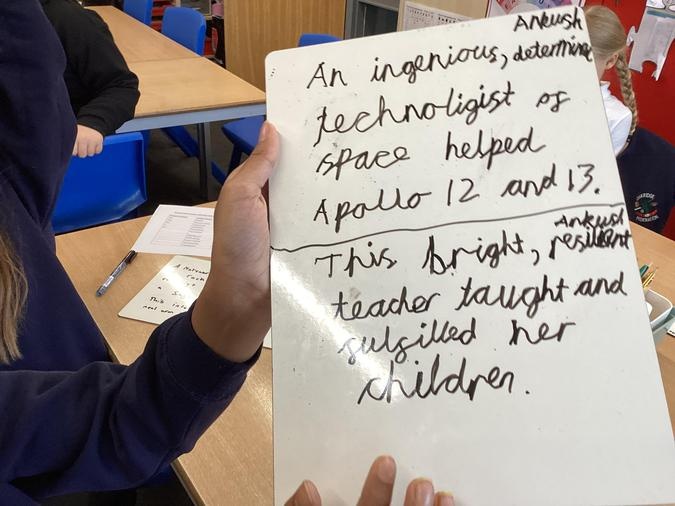 Ankush
An ingenious, determine
technoligist of
space helped
Apollo 12 and 13.
Ankush
This bright, resilient
teacher taught and
fulfilled her
children.